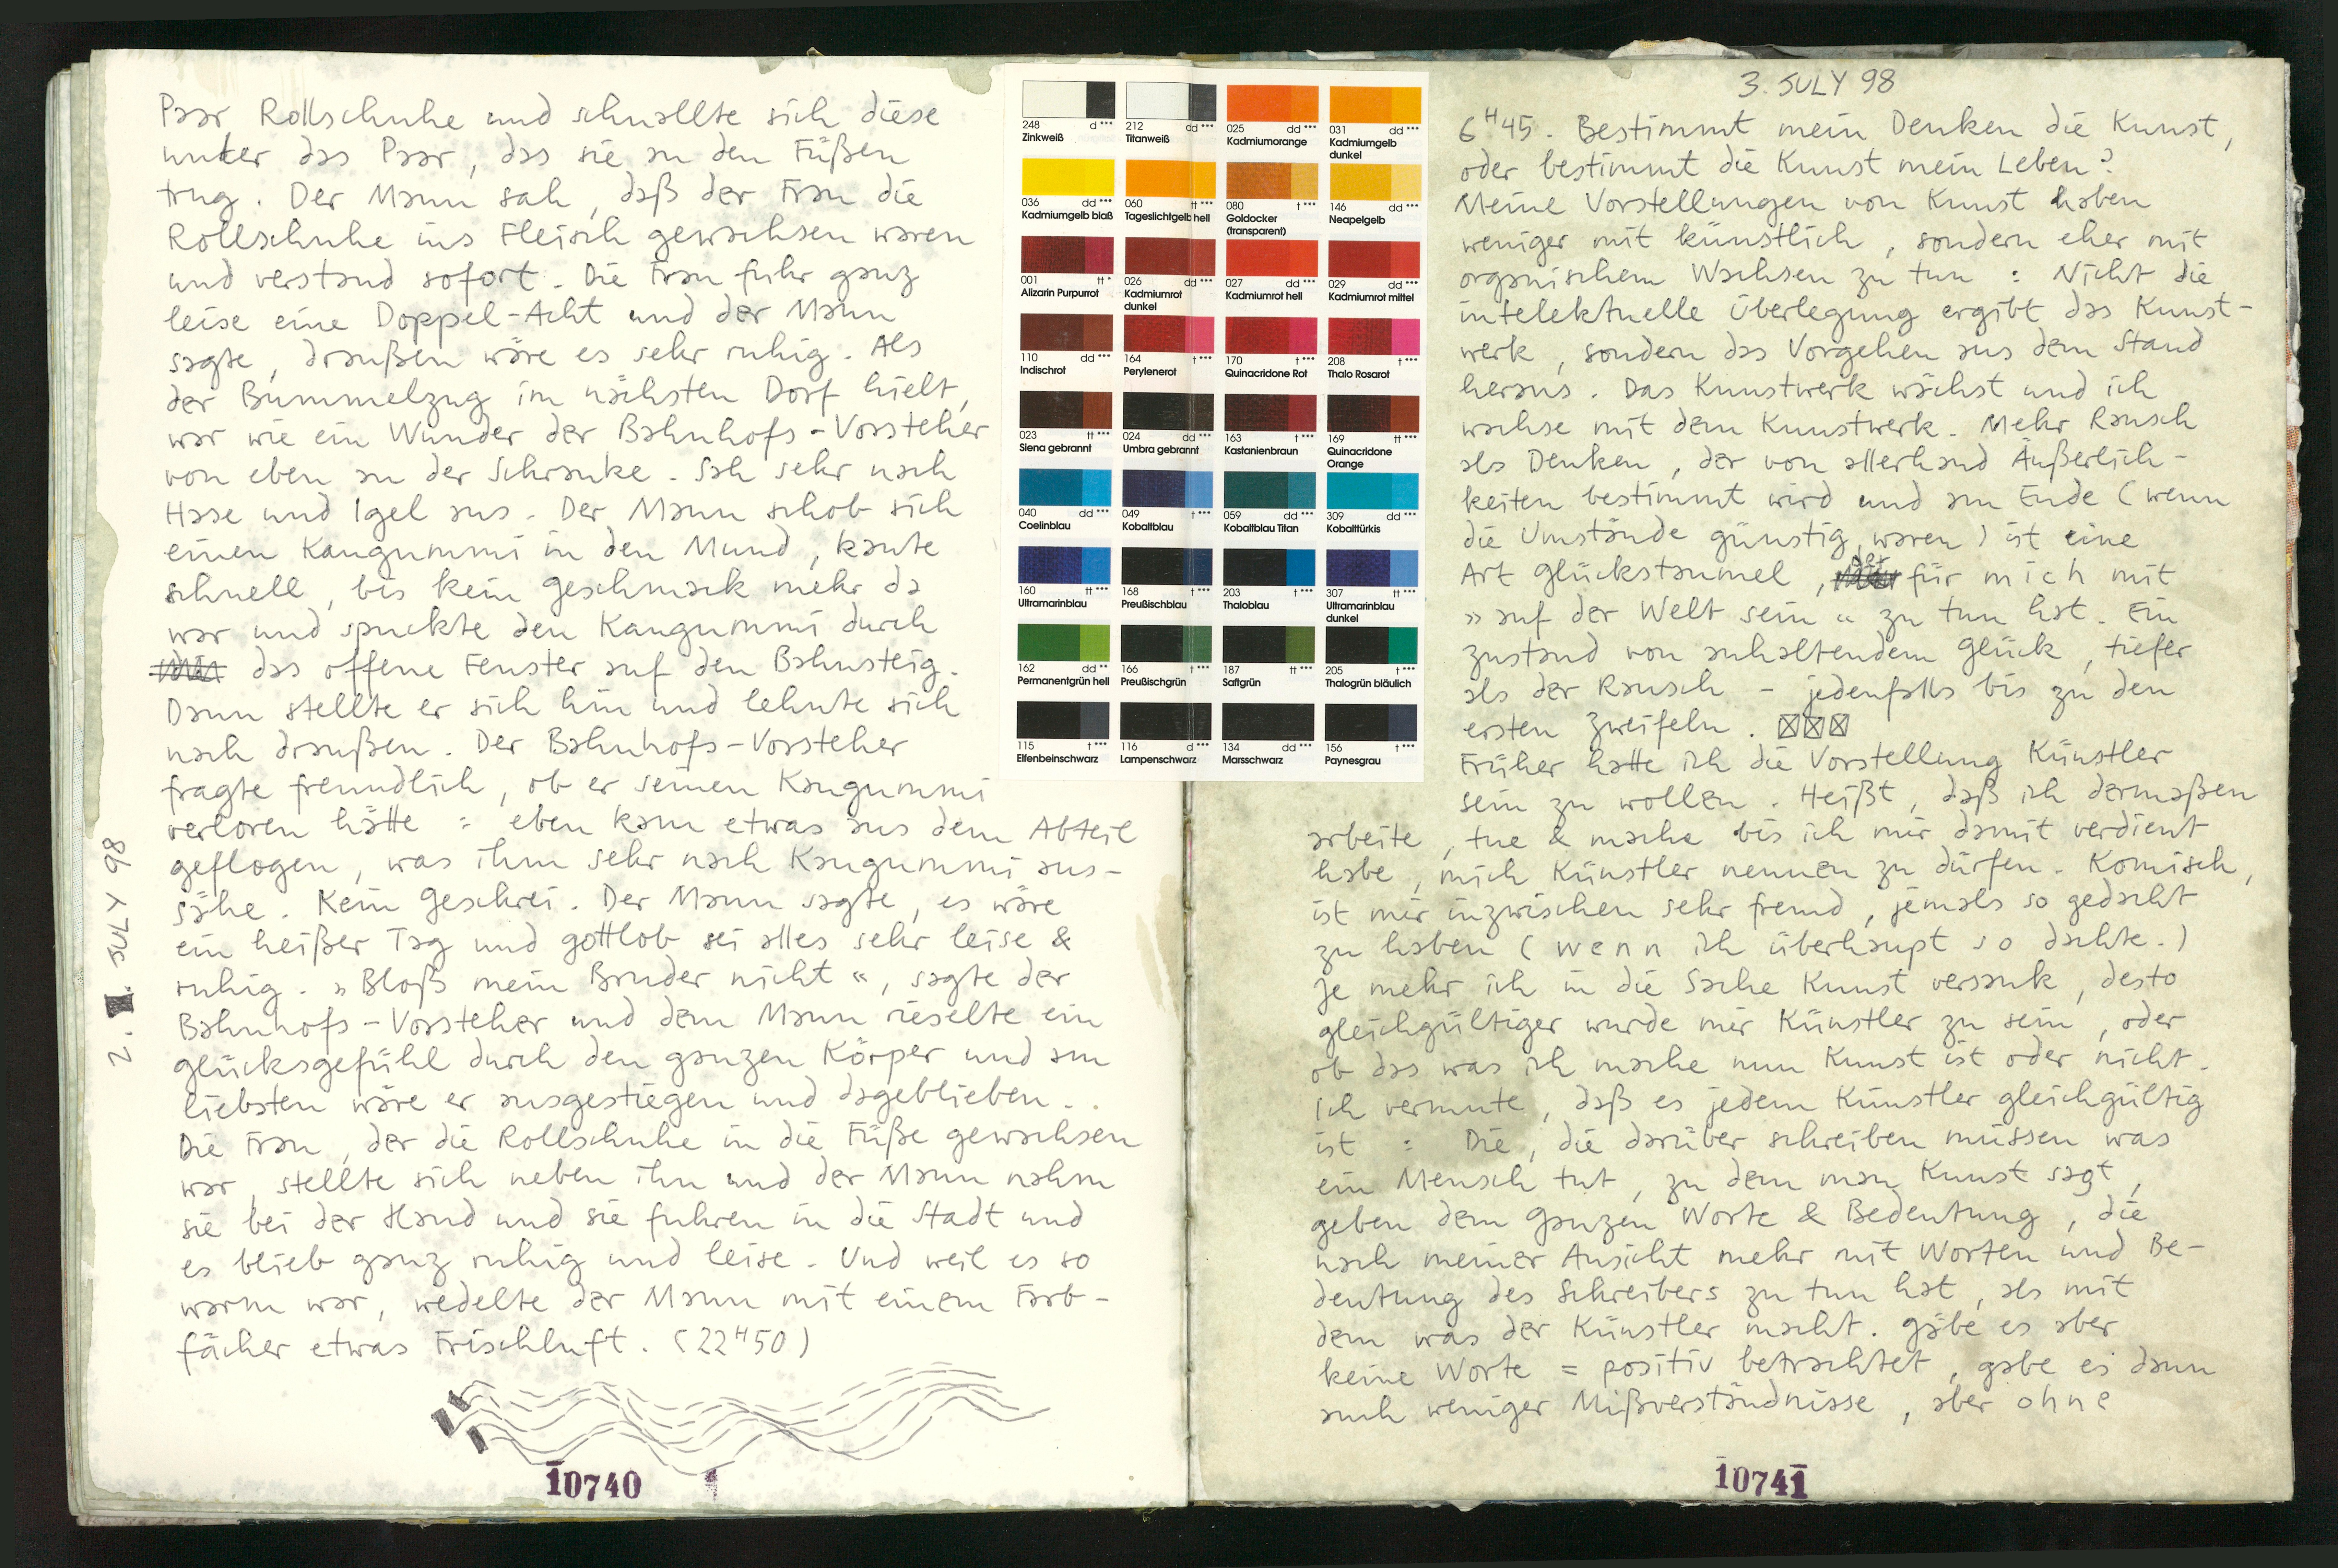 Paar Rollschuhe und schnallte sich diese
unter das Paar, das sie an den Füßen
trug. Der Mann sah, daß der Frau die
Rollschuhe ins Fleisch gewachsen waren
und verstand sofort. Die Frau fuhr ganz
leise eine Doppel-Acht und der Mann
sagte, draußen wäre es sehr ruhig. Als
der Bummelzug im nächsten Dorf hielt,
war wie ein Wunder der Bahnhofs-Vorsteher
von eben an der Schranke. Sah sehr nach
Hase und Igel aus. Der Mann schob sich
einen Kaugummi in den Mund, kaute
schnell, bis kein Geschmack mehr da
war und spuckte den Kaugummi durch
das offene Fenster auf den Bahnsteig.
Dann stellte er sich hin und lehnte sich
nach draußen. Der Bahnhofs-Vorsteher
fragte freundlich, ob er seinen Kaugummi
verloren hätte : eben kam etwas aus dem Abteil
geflogen, was ihm sehr nach Kaugummi aus-
sähe. Kein Geschrei. Der Mann sagte, es wäre
ein heißer Tag und gottlob sei alles sehr leise &
ruhig. »Bloß mein Bruder nicht«, sagte der
Bahnhofs-Vorsteher und dem Mann rieselte ein
Glücksgefühl durch den ganzen Körper und am
liebsten wäre er ausgestiegen und dageblieben.
Die Frau, der die Rollschuhe in die Füße gewachsen
war, stellte sich neben ihn und der Mann nahm
sie bei der Hand und sie fuhren in die Stadt und
es blieb ganz ruhig und leise. Und weil es so
warm war, wedelte der Mann mit einem Farb-
fächer etwas Frischluft. (22H50)
2. JULY 98
10740
248 d ***
Zinkweiß
212 dd ***
Titanweiß
025 dd ***
Kadmiumorange
031 dd ***
Kadmiumgelb
dunkel
036 dd ***
Kadmiumgelb blaß
060 tt ***
Tageslichtgelb hell
080 t ***
Goldocker
(transparent)
146 dd ***
Neapelgelb
001 tt *
Alizarin Purpurrot
026 dd ***
Kadmiumrot
dunkel
027 dd ***
Kadmiumrot hell
029 dd ***
Kadmiumrot mittel
110 dd ***
Indischrot
164 t ***
Perylenerot
170 t ***
Quinacridone Rot
208 t ***
Thalo Rosarot
023 tt ***
Siena gebrannt
024 dd ***
Umbra gebrannt
163 t ***
Kastanienbraun
169 tt ***
Quinacridone
Orange
040 dd ***
Coelinblau
049 t ***
Kobaltblau
059 dd ***
Kobaltblau Titan
309 dd ***
Kobalttürkis
160 tt ***
Ultramarinblau
168 t ***
Preußischblau
203 t ***
Thaloblau
307 tt ***
Ultramarinblau
dunkel
162 dd **
Permanentgrün hell
166 t ***
Preußischgrün
187 tt ***
Saftgrün
205 t ***
Thalogrün bläulich
115 t ***
Elfenbeinschwarz
116 d ***
Lampenschwarz
134 dd ***
Marsschwarz
156 t ***
Paynesgrau
3. JULY 98
6H45. Bestimmt mein Denken die Kunst,
oder bestimmt die Kunst mein Leben?
Meine Vorstellungen von Kunst haben
weniger mit künstlich, sondern eher mit
organischem Wachsen zu tun : Nicht die
intelektuelle Überlegung ergibt das Kunst-
werk, sondern das Vorgehen aus dem Stand
heraus. Das Kunstwerk wächst und ich
wachse mit dem Kunstwerk. Mehr Rausch
als Denken, der von allerhand Äußerlich-
keiten bestimmt wird und am Ende (wenn
die Umstände günstig waren) ist eine
Art Glückstaumel, der für mich mit
»auf der Welt sein« zu tun hat. Ein
Zustand von anhaltendem Glück, tiefer
als der Rausch - jedenfalls bis zu den
ersten Zweifeln. ☒☒☒
Früher hatte ich die Vorstellung Künstler
sein zu wollen. Heißt, daß ich dermaßen
arbeite, tue & mache bis ich mir damit verdient
habe, mich Künstler nennen zu dürfen. Komisch,
ist mir inzwischen sehr fremd, jemals so gedacht
zu haben (wenn ich überhaupt so dachte.)
Je mehr ich in die Sache Kunst versank, desto
gleichgültiger wurde mir Künstler zu sein, oder
ob das was ich mache nun Kunst ist oder nicht.
Ich vermute, daß es jedem Künstler gleichgültig
ist : Die, die darüber schreiben müssen was
ein Mensch tut, zu dem man Kunst sagt,
geben dem Ganzen Worte & Bedeutung, die
nach meiner Ansicht mehr mit Worten und Be-
deutung des Schreibers zu tun hat, als mit
dem was der Künstler macht. Gäbe es aber
keine Worte = positiv betrachtet, gäbe es dann
auch weniger Mißverständnisse, aber ohne
10741